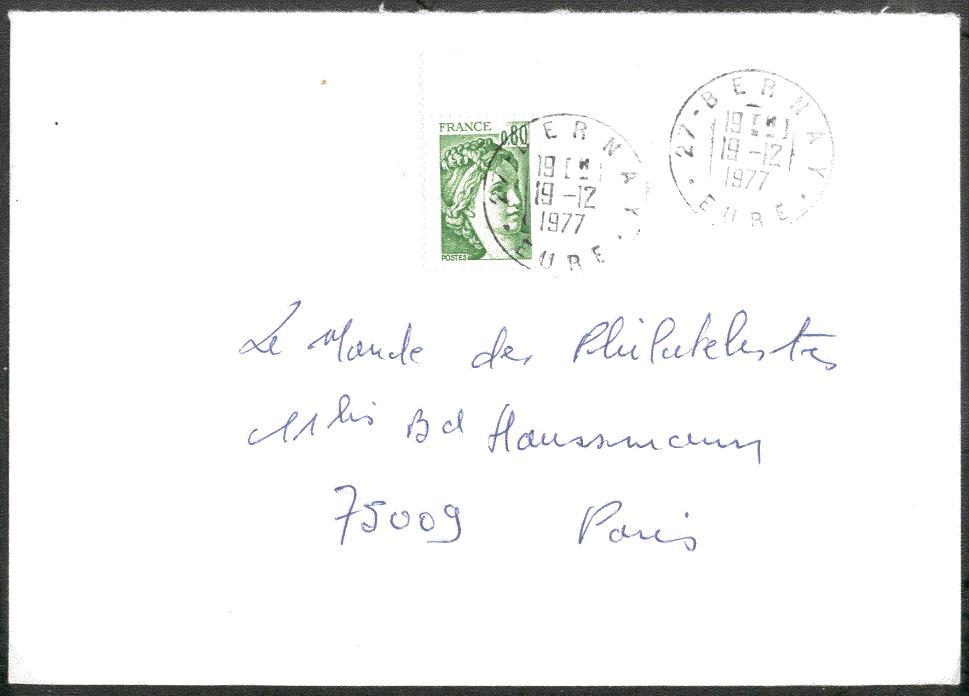 FRANCE 0,80
POSTES
27 - BERNAY
19 H
19 -12
1977
EURE
27 - BERNAY
19 H
19 -12
1977
EURE
Le Monde des Philatelistes
11 bis Bd Haussmann
75009 Paris